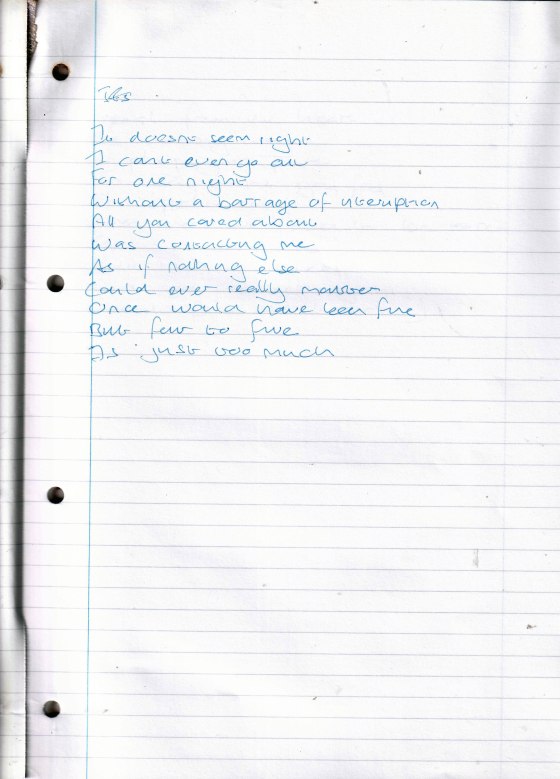 It doesnt seem right
I cant even go out
For one night
Without a barrage of interuption
All you cared about
Was contacting me
As if nothing else
Could ever really matter
Once would have been fine
But four to five
Is just too much